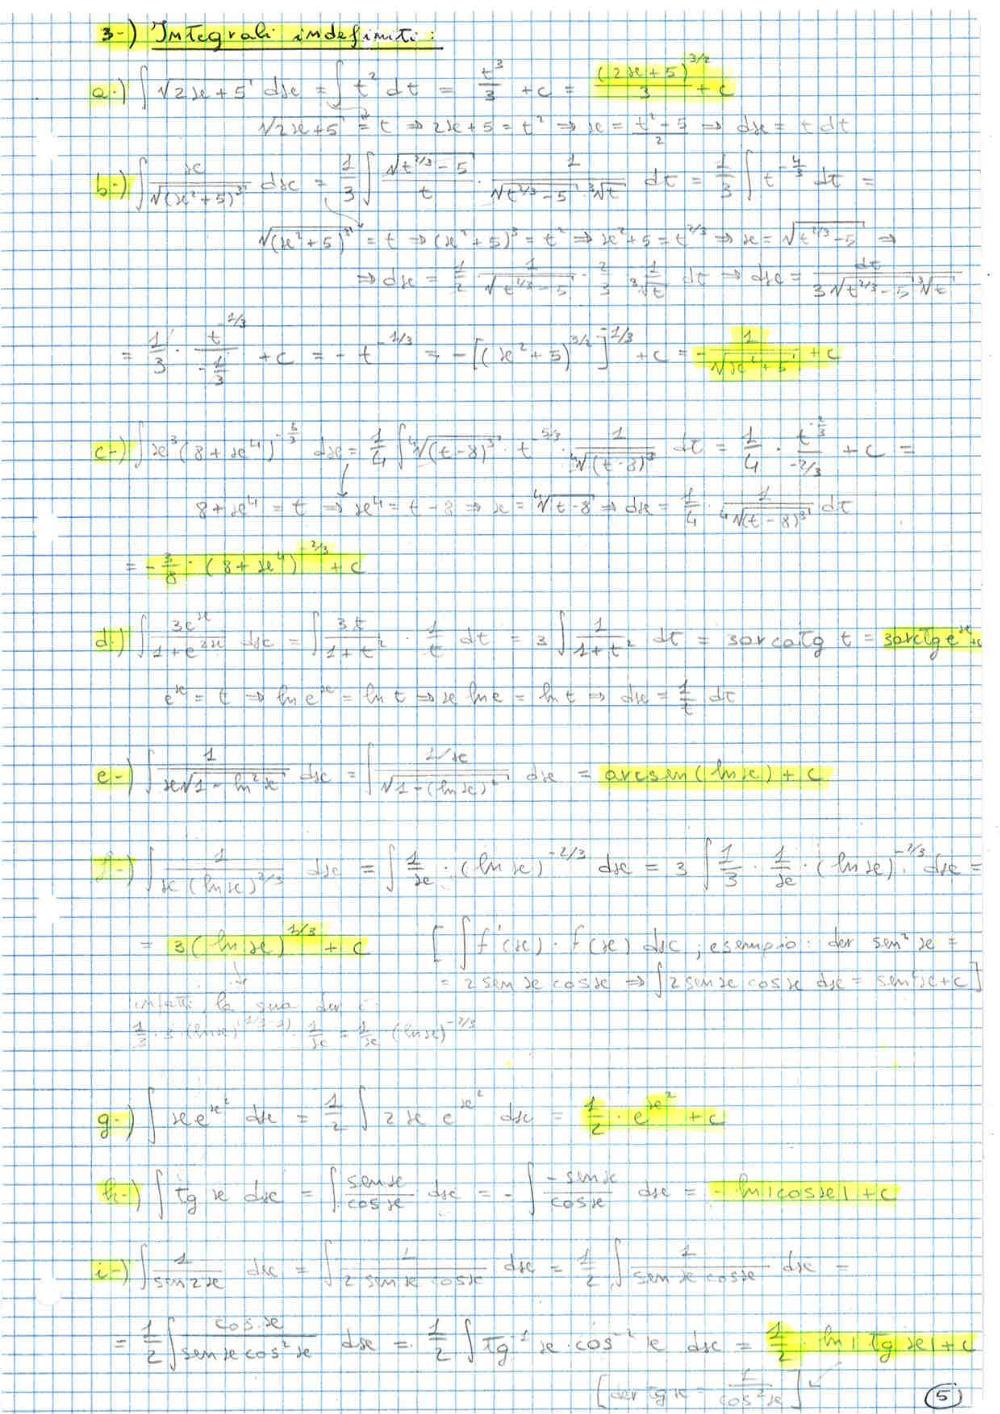 3-) Integrali indefiniti:
a-) ∫ √2x+5 dx = ∫ t² dt = t³/3 + c = (2x+5)^3/2 / 3 + c
√2x+5 = t ⇒ 2x+5 = t² ⇒ x = (t²-5)/2 ⇒ dx = t dt
b-) ∫ x/√(x²+5)³ dx = 1/3 ∫ √t^2/3-5 / t · 1/(√t^2/3-5 · ³√t) dt = 1/3 ∫ t^-4/3 dt =
√(x²+5)³ = t ⇒ (x²+5)³ = t² ⇒ x²+5 = t^2/3 ⇒ x = √t^2/3-5 ⇒
⇒ dx = 1/2 · 1/√t^2/3-5 · 2/3 · 1/³√t dt ⇒ dx = dt/(3√t^2/3-5 ³√t)
= 1/3 · t^-1/3 / -1/3 + c = - t^-1/3 = - [(x²+5)^3/2]^-1/3 + c = - 1/√x²+5 + c
c-) ∫ x³(8+x⁴)^-5/3 dx = 1/4 ∫ ⁴√(t-8)³ · t^-5/3 · 1/⁴√(t-8)³ dt = 1/4 · t^-2/3 / -2/3 + c =
8+x⁴ = t ⇒ x⁴ = t-8 ⇒ x = ⁴√t-8 ⇒ dx = 1/4 · 1/⁴√(t-8)³ dt
= - 3/8 · (8+x⁴)^-2/3 + c
d-) ∫ 3e^x/(1+e^2x) dx = ∫ 3t/(1+t²) · 1/t dt = 3 ∫ 1/(1+t²) dt = 3arcotg t = 3arctg e^x + c
e^x = t ⇒ ln e^x = ln t ⇒ x ln e = ln t ⇒ dx = 1/t dt
e-) ∫ 1/(x√1-ln²x) dx = ∫ 1/x / √1-(lnx)² dx = arcsen(lnx) + c
f-) ∫ 1/(x(lnx)^2/3) dx = ∫ 1/x · (lnx)^-2/3 dx = 3 ∫ 1/3 · 1/x · (lnx)^-2/3 dx =
= 3(lnx)^1/3 + c [∫ f'(x) · f(x) dx ; esempio: der sen²x =
= 2 senx cosx ⇒ ∫ 2senx cosx dx = sen²x+c]
infatti la sua der è:
1/3 · 3 (lnx)^(1/3-1) · 1/x = 1/x (lnx)^-2/3
g-) ∫ x e^x² dx = 1/2 ∫ 2x e^x² dx = 1/2 · e^x² + c
h-) ∫ tg x dx = ∫ senx/cosx dx = - ∫ -senx/cosx dx = - ln|cosx| + c
i-) ∫ 1/sen2x dx = ∫ 1/(2 senx cosx) dx = 1/2 ∫ 1/(senx cosx) dx =
= 1/2 ∫ cosx/(senx cos²x) dx = 1/2 ∫ tg^-1 x · cos^-2 x dx = 1/2 · ln|tgx| + c
[der tgx = 1/cos²x]
5